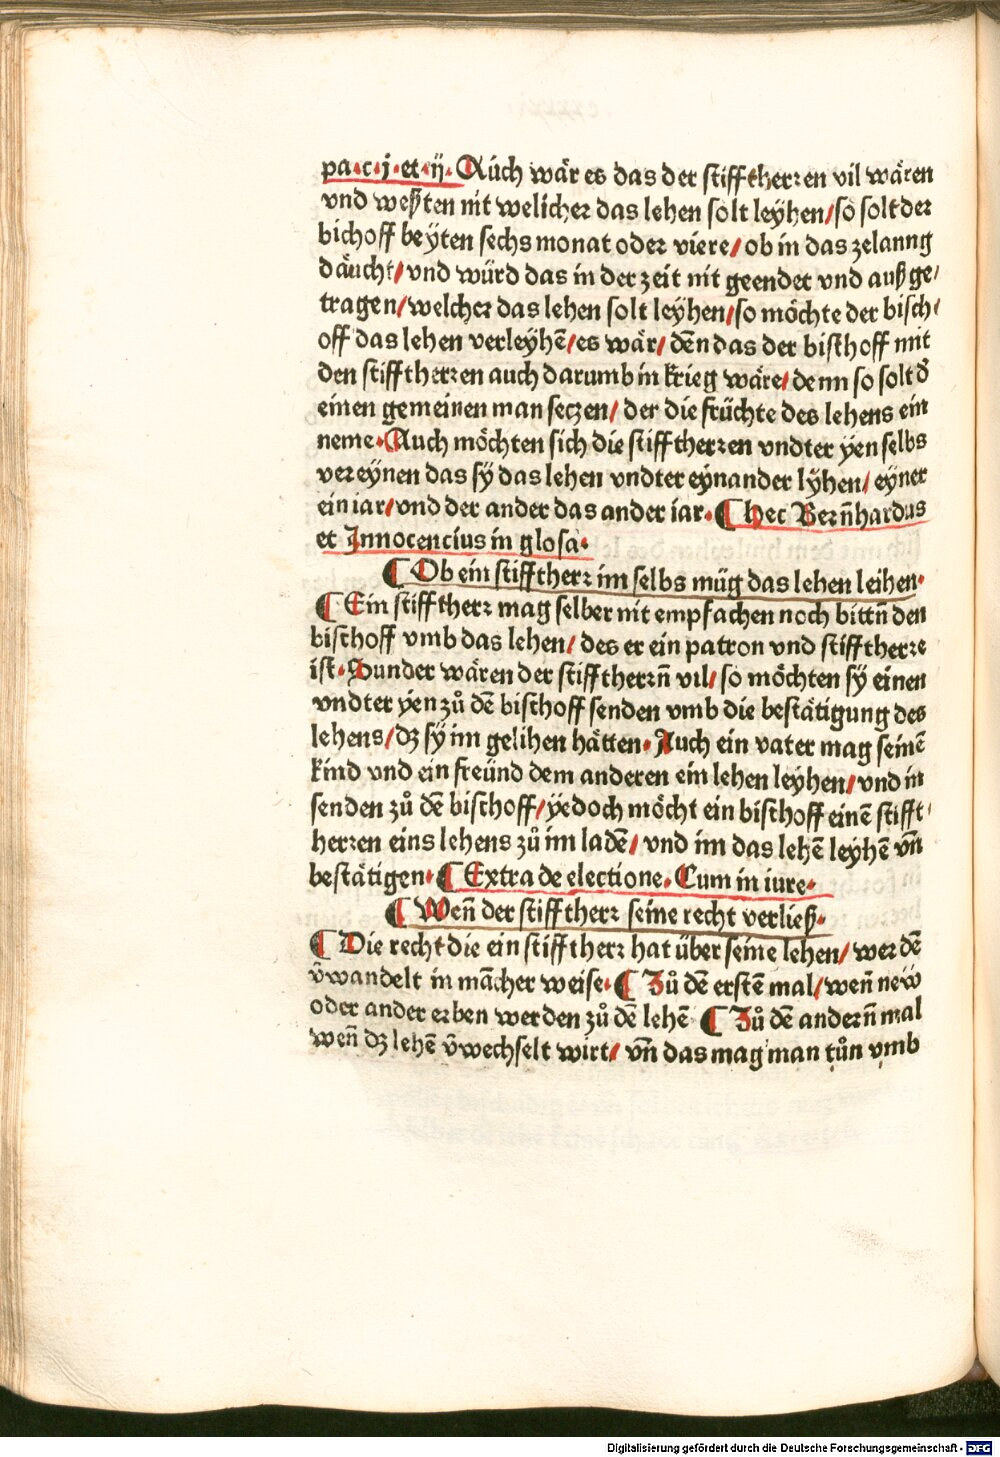 pa·c·j·et·ij· Aúch wår es das der stifftherren vil wåren
vnd weßten nit welicher das lehen solt leyhen/so solt der
bischoff beÿten sechs monat oder viere/ob in das zelanng
dåucht/vnd wúrd das in der zeit nit geendet vnd auß ge/
tragen/welcher das lehen solt leyhen/so möchte der bisch/
off das lehen verleyhē/es wår/dēn das der bischoff mit
den stifftherren auch darumb in krieg wåre/denn so solt d̕
einen gemeinen man seczen/der die früchte des lehens ein
neme·Auch möchten sich die stifftherren vndter ÿen selbs
vereÿnen das sÿ das lehen vndter eÿnander lÿhen/eÿner
ein iar/vnd der ander das ander iar·¶hec Bern̄hardus
et Innocencius in glosa·
¶Ob ein stifftherr im selbs müg das lehen leihen·
¶Ein stifftherr mag selber nit empfachen noch bittn̄ den
bischoff vmb das lehen/des er ein patron vnd stifftherre
ist·Sunder wåren der stifftherrn̄ vil/so möchten sÿ einen
vndter ÿen zů dē bischoff senden vmb die beståtigung des
lehens/dz sÿ im gelihen håtten·Auch ein vater mag seinē
kind vnd ein freünd dem anderen ein lehen leyhen/vnd in
senden zů dē bischoff/ÿedoch möcht ein bischoff einē stifft/
herren eins lehens zů im ladē/vnd im das lehē leyhē vn̄
beståtigen·¶Extra de electione·Cum in iure·
¶Wen̄ der stifftherr seine recht verließ·
¶Die recht die ein stifftherr hat über seine lehen/werdē
v̕wandelt in mācher weise·¶Zů dē erstē mal/wen̄ new
oder ander erben werden zů dē lehē ¶Zů dē andern̄ mal
wen̄ dz lehē v̕wechselt wirt/vn̄ das mag man tůn vmb
Digitalisierung gefördert durch die Deutsche Forschungsgemeinschaft - DFG